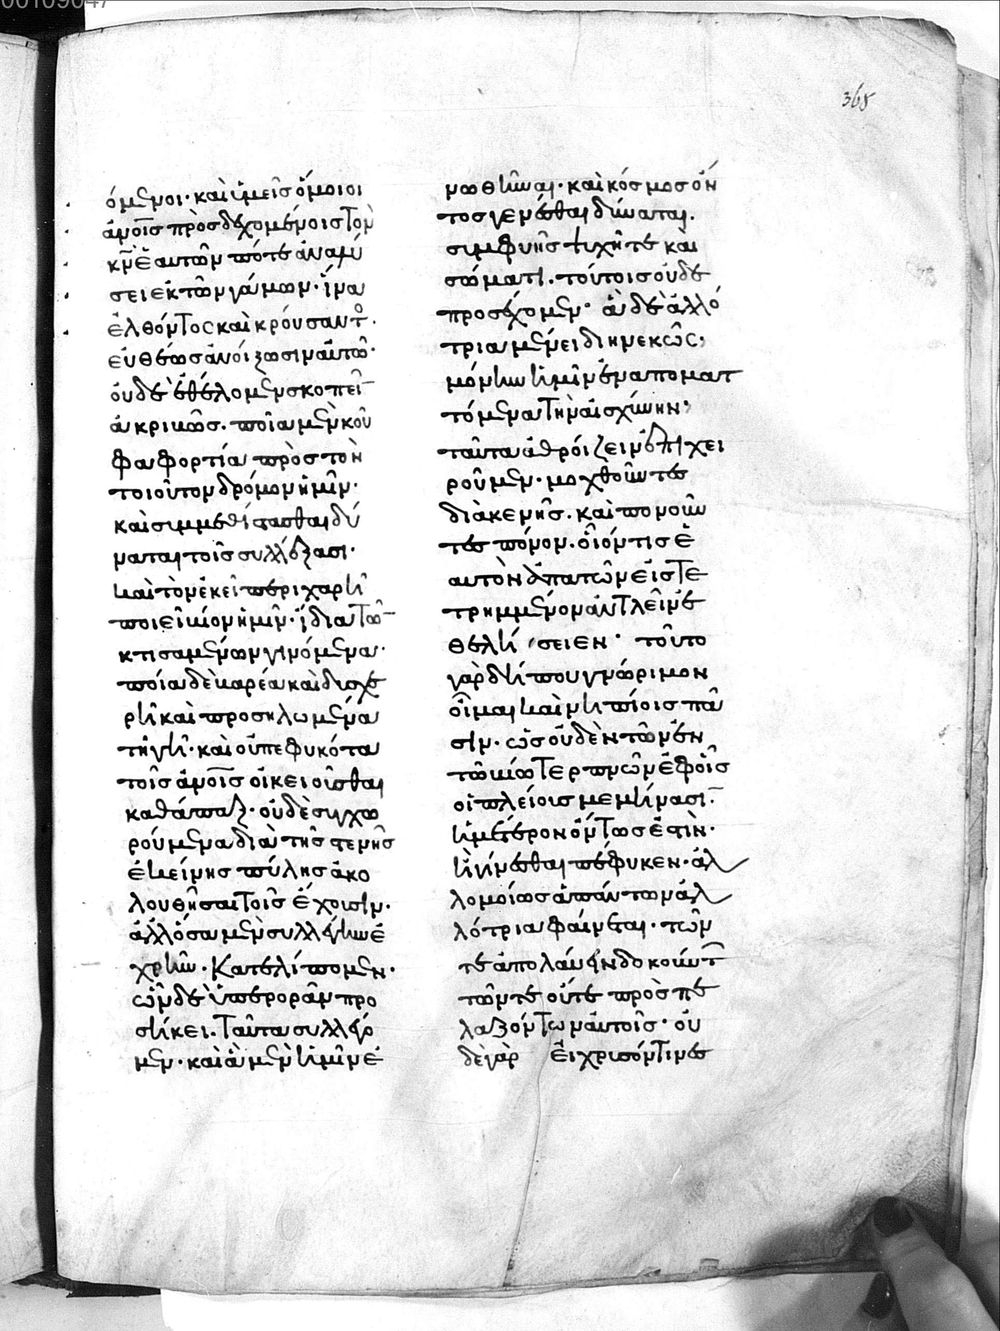 00109047
368
όμενοι· καὶ ὑμεῖς ὅμοιοι
ἀνοῖς προσδεχομένοις τὸν
κν̄ ἑαυτῶν πότε ἀναλύ
σει ἐκ τῶν γάμων· ἵνα
ἐλθόντος καὶ κρούσαντο.
εὐθέως ἀνοίξωσιν αὐτῶ·
οὐδὲ ἐθέλομεν σκοπεῖ̄
ἀκριβῶς. ποῖα μὲν κοῦ
φα φορτία πρὸς τὸν
τοιοῦτον δρόμον ἡμῖν·
καὶ συμμεθίστασθαι δύ
ναται τοῖς συλλέξασι·
καὶ τὸν ἐκεῖ περιχαρῆ
ποιεῖ βίον ἡμῖν· ἴδια τῶ̄
κτισαμένων γινόμενα·
ποῖα δὲ βαρέα καὶ δυσχε
ρῆ καὶ προσηλωμένα
τῆ γῆ· καὶ οὐ πεφυκότα
τοῖς ἀνοῖς οἰκειοῦσθαι
καθάπαξ· οὐδὲ συγχω
ρούμενα διὰ τῆς στενῆς
ἐκείνης πύλης ἀκο
λουθῆσαι τοῖς ἔχουσιν.
ἀλλ' ὅσα μὲν συλλέγειν ἐ
χρῆν. κατελίπομεν·
ὧν δὲ ὑπερορᾶν προ
σῆκει. ταῦτα συλλέγο
μεν· καὶ ἃ μὲν ἡμῖν ἑ
νωθῆναι· καὶ κόσμος ὄν
τος γενέσθαι δύναται.
συμφυὴς ψυχῆ τε καὶ
σώματι. τούτοις οὐδὲ
προσέχομεν· ἃ δὲ ἀλλό
τρια μένει διηνεκῶς,
μόνην ἡμῖν ἐναποματ
τόμενα τὴν αἰσχύνην,
ταῦτα ἀθροίζειν ἐπιχει
ροῦμεν· μοχθοῦντες
διὰ κενῆς. καὶ πονοῦν
τες πόνον. οἷόν τις ἑ
αυτὸν ἀπατῶν εἰς τε
τρημμένον ἀντλεῖν ἐ
θελήσειεν· τοῦτο
γὰρ δή που γνώριμον
οἶμαι καὶ νηπίοις πᾶ
σιν. ὡς οὐδὲν τῶν ἐν
τῶ βίω τερπνῶν ἐφ' οἷς
οἱ πλείους μεμήνασι.
ἡμέτερον ὄντως ἐστὶν·
ἢ γίνεσθαι πέφυκεν· ἀλ
λ' ὁμοίως ἁπάντων ἀλ
λότρια φαίνεται· τῶν
τε ἀπολαύειν δοκούντ
ων τε οὔτε πρὸς πε
λαζόντων αὐτοῖς· οὐ
δὲ γὰρ εἰ χρυσόν τινες